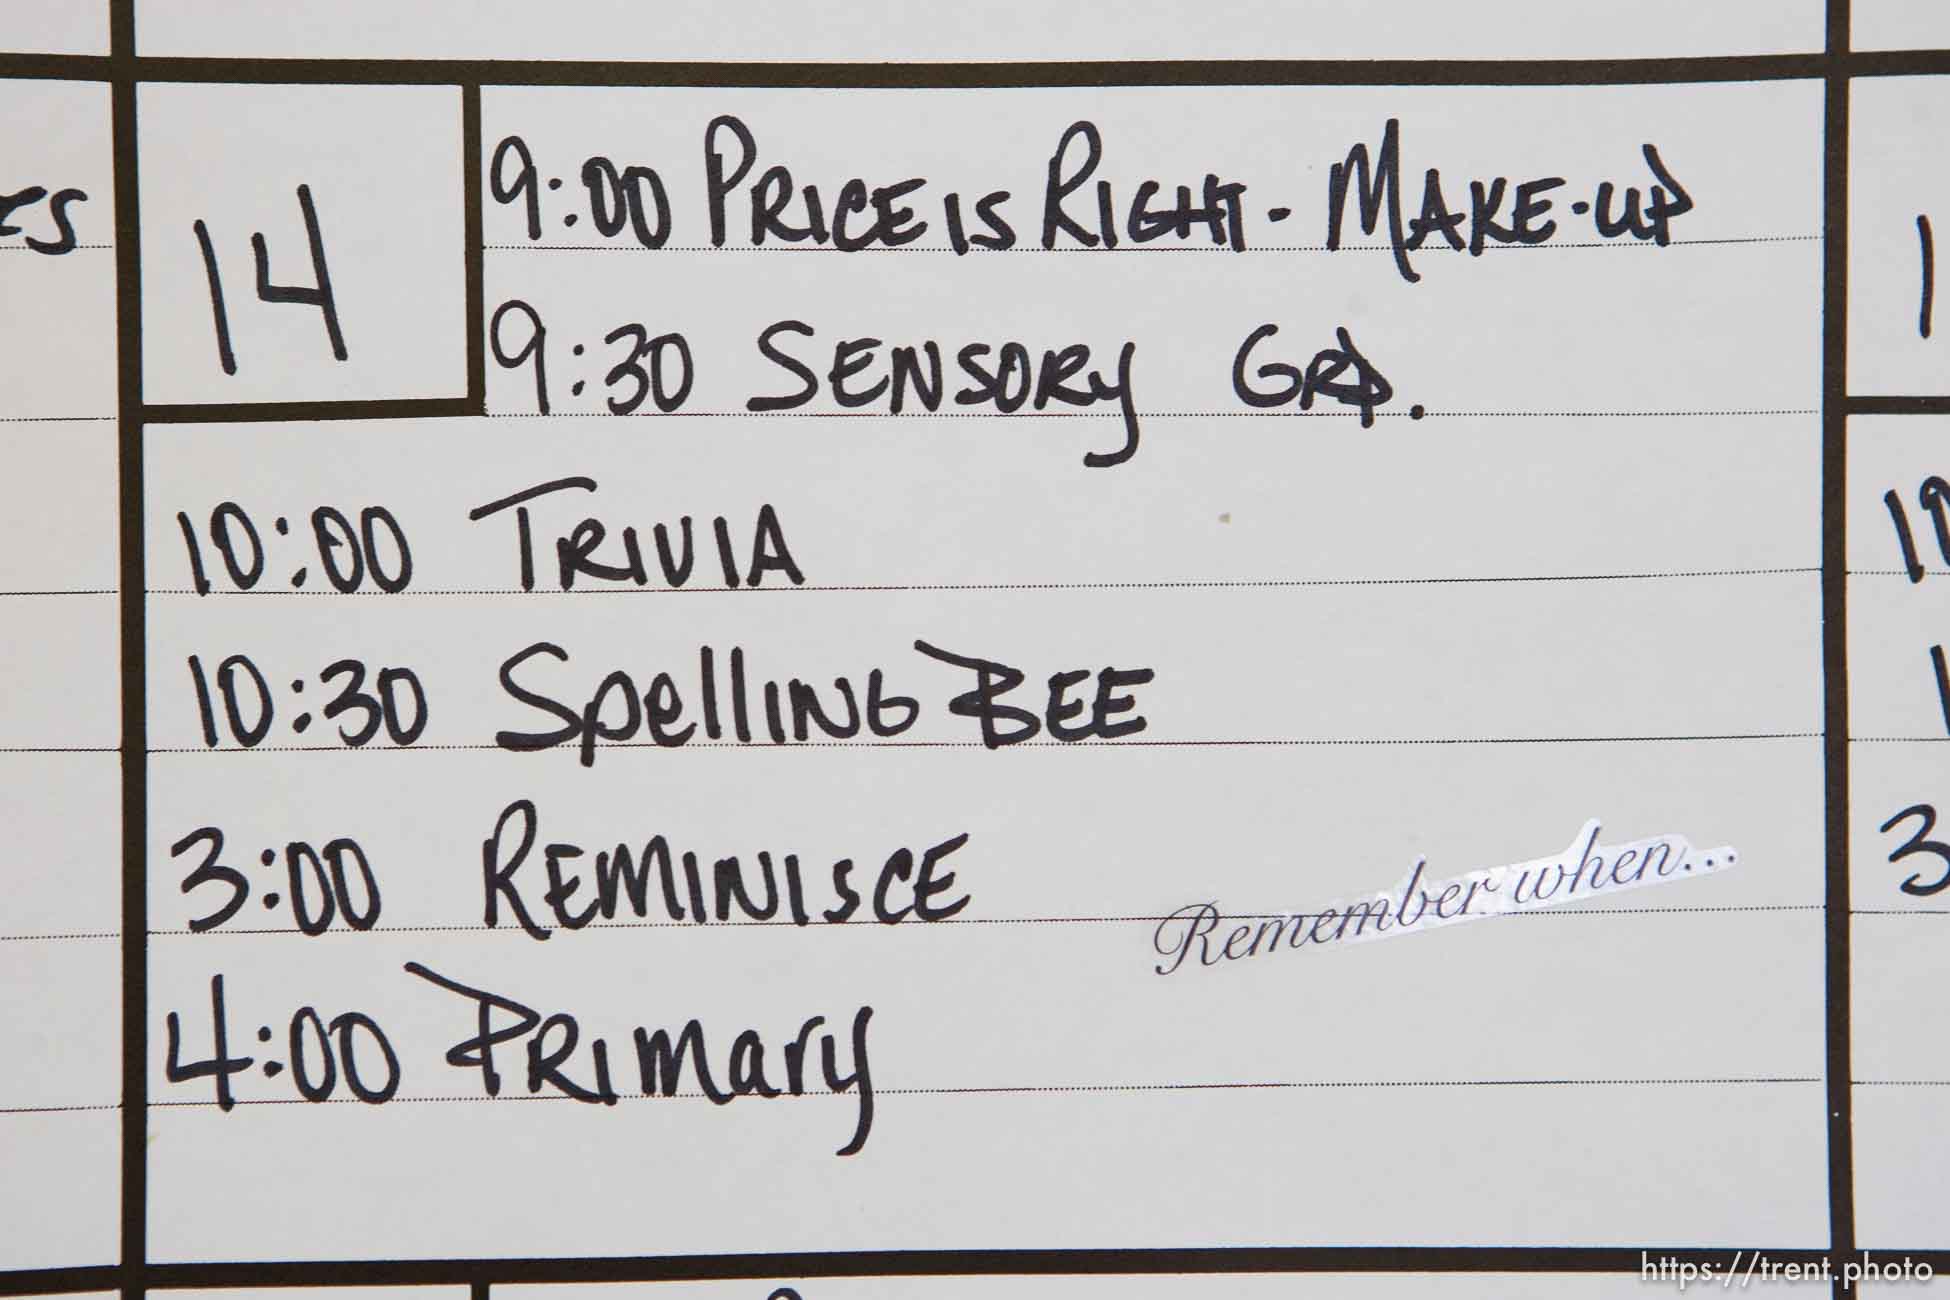 es
14
9:00 PRICE IS RIGHT - MAKE-UP
9:30 SENSORY GRP.
10:00 TRIVIA
10:30 SpellING BEE
3:00 REMINISCE
Remember when...
4:00 PRImary
1
10
1
3
https://trent.photo